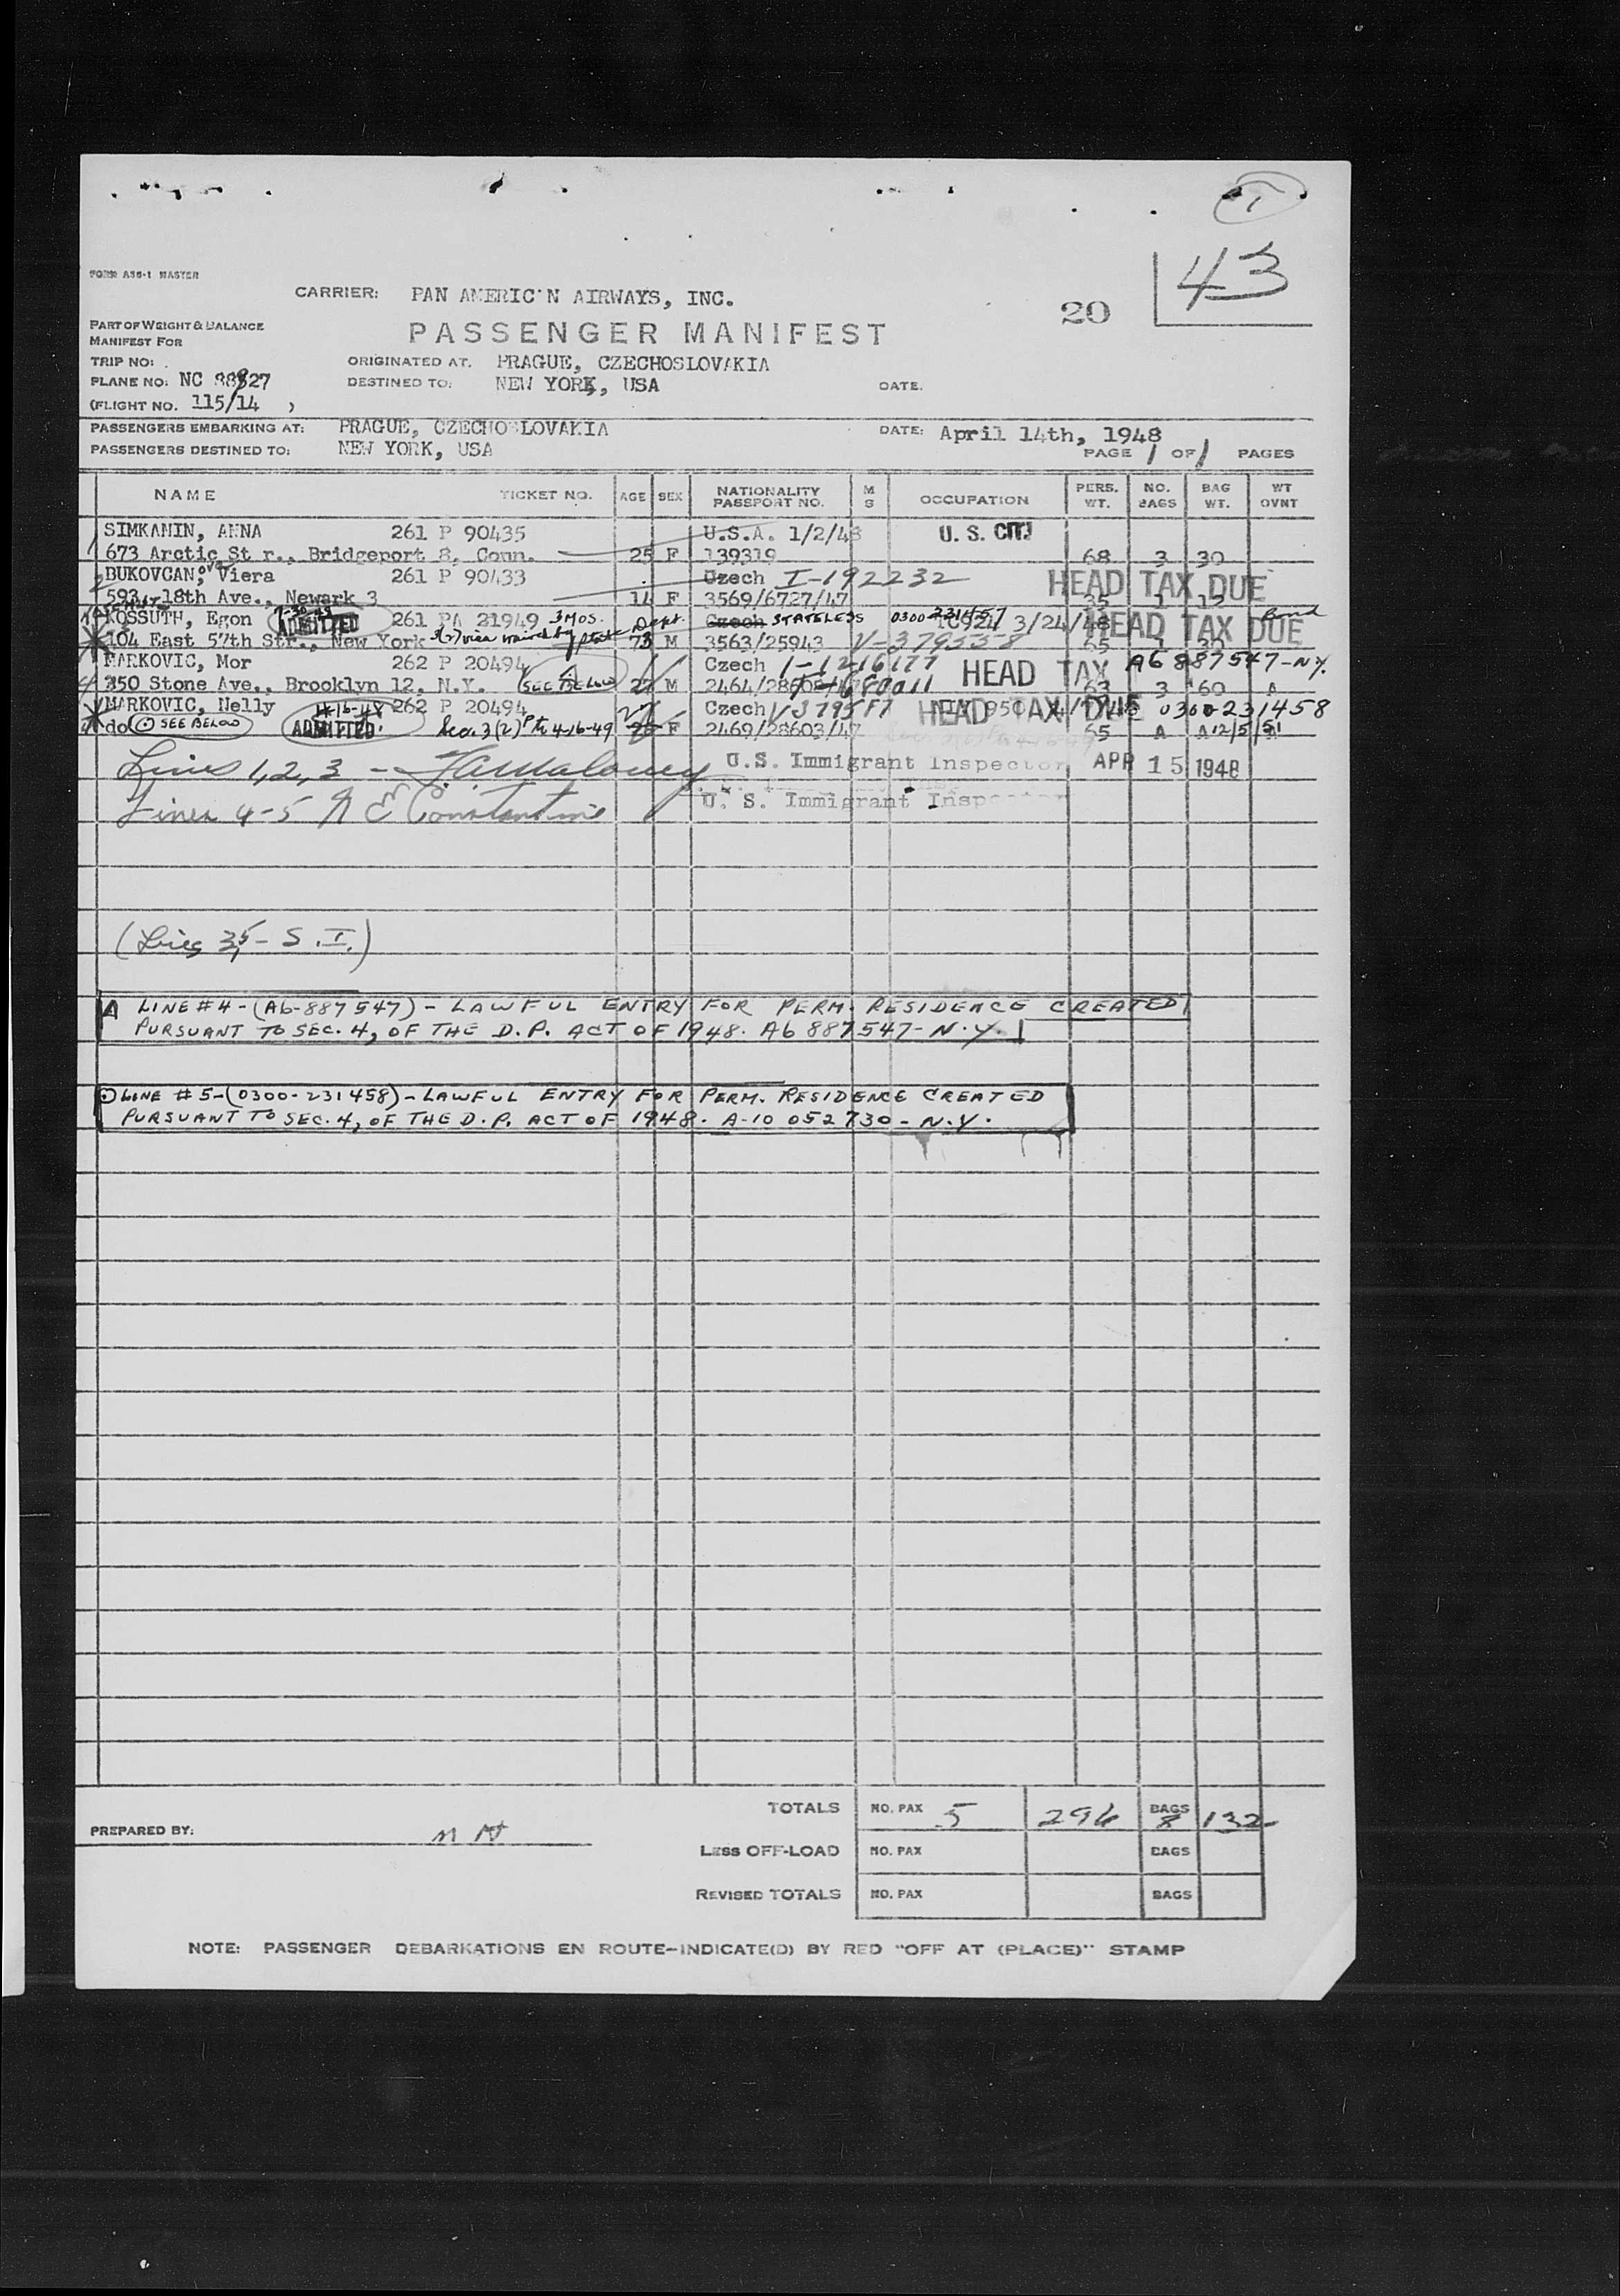 1
43
FORM A36-1 MASTER
CARRIER: PAN AMERIC'N AIRWAYS, INC.
20
PART OF WEIGHT & BALANCE
MANIFEST FOR
PASSENGER MANIFEST
TRIP NO:
ORIGINATED AT. PRAGUE, CZECHOSLOVAKIA
PLANE NO: NC 88827
DESTINED TO: NEW YORK, USA
DATE.
(FLIGHT NO. 115/14 )
PASSENGERS EMBARKING AT: PRAGUE, CZECHOSLOVAKIA
DATE: April 14th, 1948
PASSENGERS DESTINED TO: NEW YORK, USA
PAGE 1 OF 1 PAGES
NAME TICKET NO. AGE SEX NATIONALITY PASSPORT NO. M S OCCUPATION PERS. WT. NO. BAGS BAG WT. WT OVNT
SIMKANIN, ANNA 261 P 90435 U.S.A. 1/2/48 U. S. CIT.
1 673 Arctic St r., Bridgeport 8, Conn. 25 F 139319 68 3 30
BUKOVCAN, ova Viera 261 P 90433 Czech I-192232 HEAD TAX DUE
2 593, 18th Ave., Newark 3 14 F 3569/6727/47 35 1 12
KOSSUTH, Egon ADMITTED 261 PA 21949 3 MOS. Czech STATELESS 0300 231457 3/24/48 Bond
104 East 57th Str., New York 3(2) visa waived by State Dept. 73 M 3563/25943 V-379558 HEAD TAX DUE 65 1 30
MARKOVIC, Mor 262 P 20494 Czech I-1216177 HEAD TAX A6 887547-N.Y.
4 350 Stone Ave., Brooklyn 12, N.Y. (SEE BELOW) 27 M 63 3 60 A
MARKOVIC, Nelly 4-16-48 262 P 20494 Czech HEAD TAX DUE 0300-231458
do SEE BELOW ADMITTED Sec. 3(2) to 4-16-49 F 2469/28603/47 65 A A 12/5/51
Lines 1,2,3 - Maloney U.S. Immigrant Inspector APR 15 1948
Lines 4-5 N E Constantine U. S. Immigrant Inspector
(Lines 3,5 - S.I.)
A LINE #4-(A6-887547) - LAWFUL ENTRY FOR PERM. RESIDENCE CREATED
PURSUANT TO SEC. 4, OF THE D.P. ACT OF 1948. A6 887547-N.Y.
LINE #5-(0300-231458)-LAWFUL ENTRY FOR PERM. RESIDENCE CREATED
PURSUANT TO SEC. 4, OF THE D.P. ACT OF 1948. A-10 052730-N.Y.
TOTALS NO. PAX 5 296 BAGS 8 132
PREPARED BY:
LESS OFF-LOAD NO. PAX BAGS
REVISED TOTALS NO. PAX BAGS
NOTE: PASSENGER DEBARKATIONS EN ROUTE-INDICATE(D) BY RED "OFF AT (PLACE)" STAMP